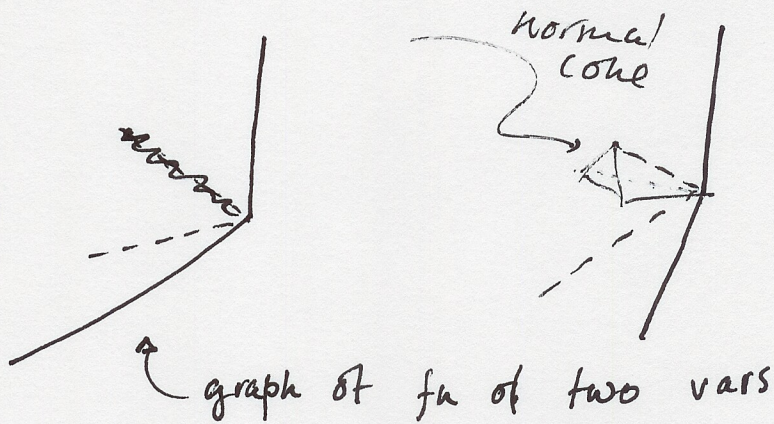 normal
cone
graph of fn of two vars